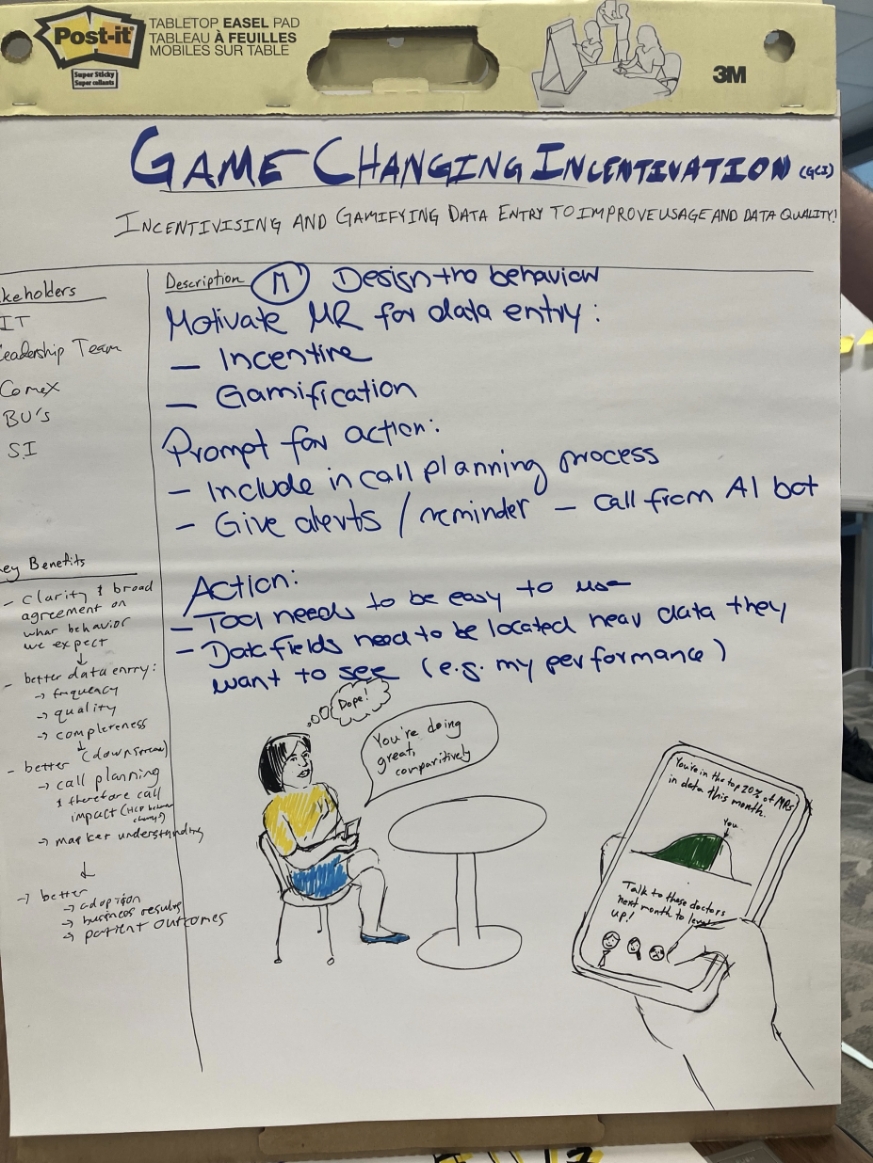 Post-it
Super Sticky
Super collants
TABLETOP EASEL PAD
TABLEAU À FEUILLES
MOBILES SUR TABLE
3M
GAME CHANGING INCENTIVATION (GCI)
INCENTIVISING AND GAMIFYING DATA ENTRY TO IMPROVE USAGE AND DATA QUALITY!
keholders
IT
Leadership Team
Comex
BU's
SI
ey Benefits
- clarity & broad
agreement on
what behavior
we expect
↓
- better data entry:
→ frequency
→ quality
→ completeness
↓ (downstream)
- better
→ call planning
& therefore call
impact (HCP
→ market understanding
↓
→ better
→ adoption
→ business results
→ patient outcomes
Description M Design the behavior
Motivate MR for data entry:
- Incentive
- Gamification
Prompt for action:
- Include in call planning process
- Give alerts / reminder - call from AI bot
Action:
- Tool needs to be easy to use
- Data fields need to be located near data they
want to see (e.g. my performance)
Dope!
You're doing
great,
comparitively
You're in the top 20% of MRs
in data this month.
You
Talk to these doctors
next month to level
up!